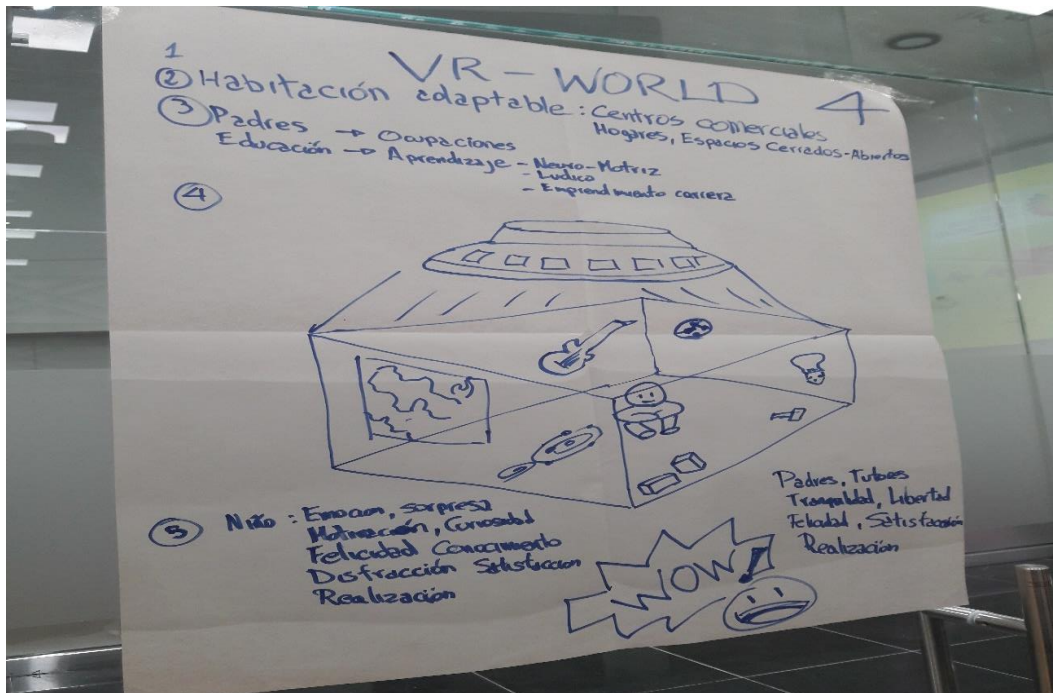 1 VR - WORLD 4
② Habitación adaptable : Centros comerciales
Hogares, Espacios Cerrados-Abiertos
③ Padres → Ocupaciones
Educación → Aprendizaje - Neuro-Motriz
- Ludico
- Emprendimiento carrera
④
⑤ Niño : Emocion, sorpresa
Motivación, Curiosidad
Felicidad Conocimiento
Distracción Satisfaccion
Realización
Padres, Tutores
Tranquilidad, Libertad
Felicidad, Satisfacción
Realización
WOW!